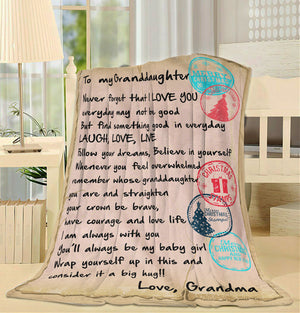 To my Granddaughter
Never forget that I LOVE YOU
everyday may not be good
But find something good in everyday
LAUGH, LOVE, LIVE
Follow your dreams, Believe in yourself
Whenever you feel overwhelmed
remember whose granddaughter
you are and straighten
your crown be brave,
have courage and love life
I am always with you
You'll always be my baby girl
Wrap yourself up in this and
consider it a big hug!!
Love, Grandma
CHRISTMAS
CHRISTMAS